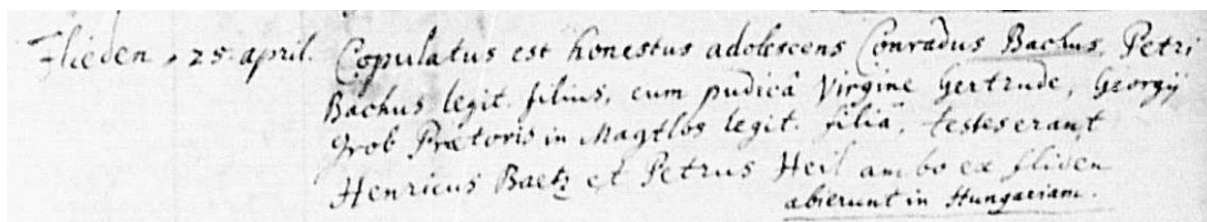 Flieden, 25. april. Copulatus est honestus adolescens Conradus Bachus, Petri
Bachus legit. filius, cum pudicâ Virgine Gertrude, Georgÿ
Grob Prætoris in Magtlos legit. filiâ, testes erant
Henricus Baetz et Petrus Heil ambo ex fliden
abierunt in Hungariam.